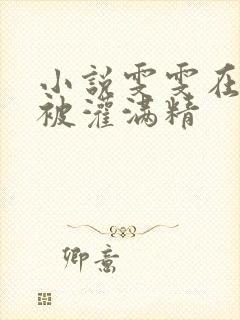 小説雯雯在
被灌满精
卿意